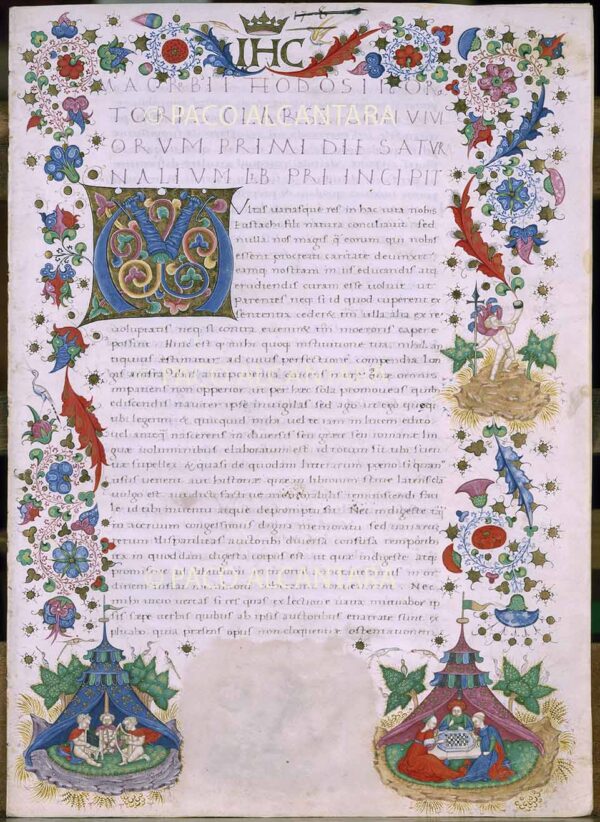 IHC
MACROBII THEODOSII ORA
TORIS CLARISSIMI CONVIVI
ORVM PRIMI DIE SATVR
NALIVM LIB PRI INCIPIT
M Vltas uariasque res in hac uita nobis
Eustachi fili natura conciliauit sed
nulla nos magis q̃ eorum qui nobis
essent procreati caritate deuinxit
eamq nostram in iis educandis atq
erudiendis curam esse uoluit ut
parentes neq si id quod cuperent ex
sententia cederet tm̃ ulla alia ex re
uoluptatis neq si contra eueniret tm̃ moeroris capere
possint Hinc est q mihi quoq institutione tua nihil an
tiquius estimatur ad cuius perfectionem compendia lon
gis anfractibus anteponenda ducens moreq omnis
impatiens non opperior ut per hec sola promoueas quibus
ediscendis nauiter ipse inuigilas sed ago ut ego quoq
tibi legerim et quicquid mihi uel te iam in lucem edito
uel anteq nascereris in diuersis seu grece seu romane lin
gue uoluminibus elaboratum est id totum sit tibi scien
tie supellex et quasi de quodam litterarum peno si quan
usus uenerit aut historie que in librorum strue latens clā
uolgo est aut dicti factiue memorabilis reminiscendi faci
le id tibi inuentu atque depromptu sit Nec indigeste tāq
in aceruum congessimus digna memoratu sed uariarū
rerum disparilitas auctoribus diuersa confusa temporibus
ita in quoddam digesta corpus est ut que indigeste atq
promiscue ad subsidium
Nec
mihi uicio uertas si res quas ex lectione uaria mutuabor ip
sis sepe uerbis quibus ab ipsis auctoribus enarrate sunt ex
plicabo quia presens opus non eloquentie ostentationem
© PACO ALCANTARA
© PACO ALCANTARA
© PACO ALCANTARA